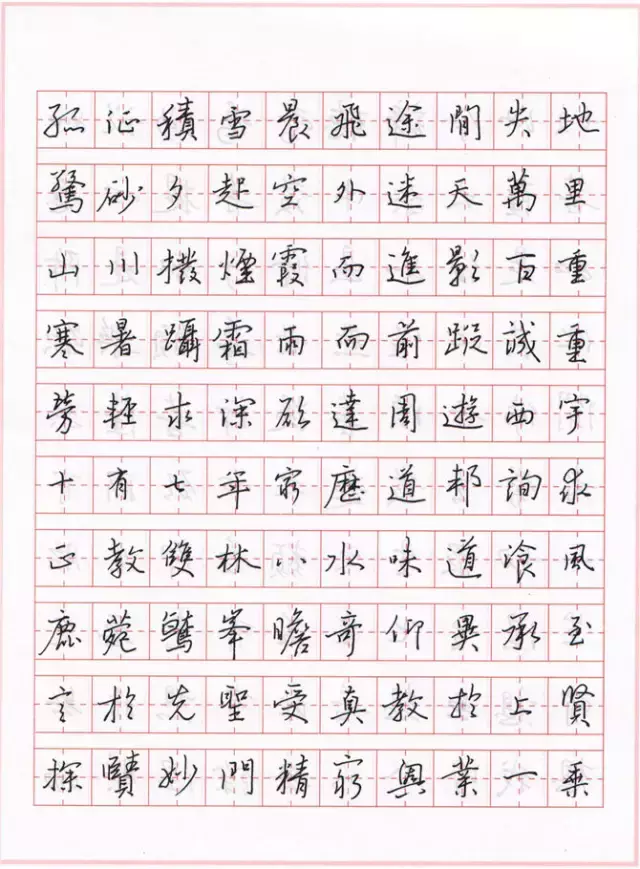 孤征積雪晨飛途閒失地
驚砂夕起空外迷天萬里
山川撥煙霞而進影百重
寒暑躡霜雨而前蹤誠重
勞輕求深欲達周遊西宇
十有七年窮歷道邦詢求
正教雙林八水味道飡風
鹿菀鷲峯瞻奇仰異承至
言於先聖受真教於上賢
探賾妙門精窮奧業一乘